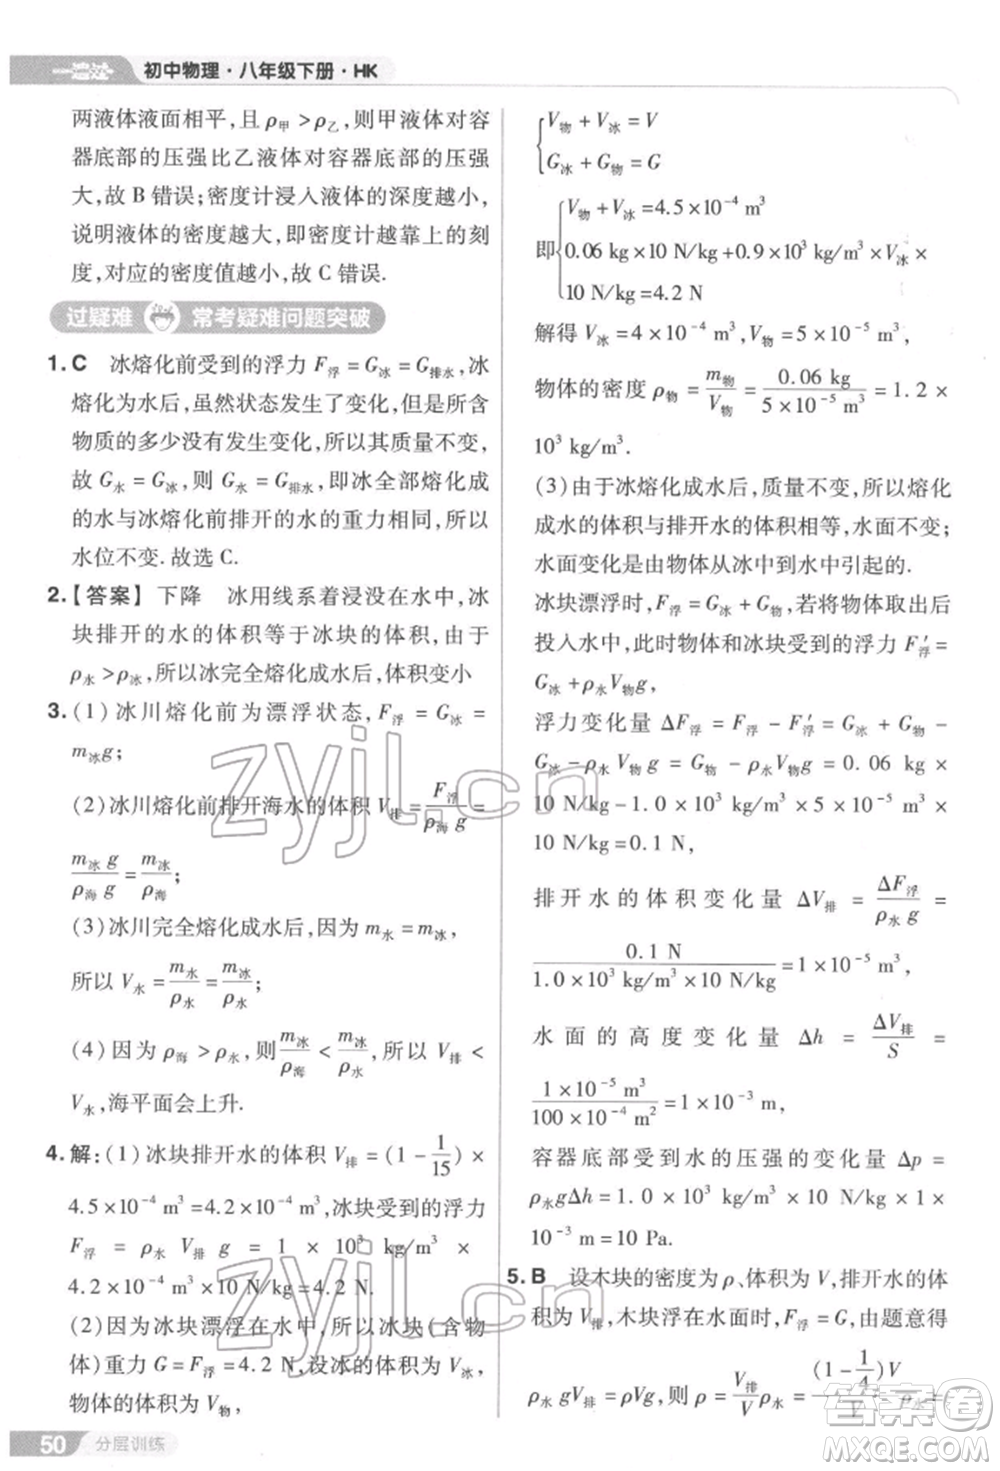 一遍过 初中物理·八年级下册·HK
两液体液面相平，且 ρ甲 >ρ乙，则甲液体对容
器底部的压强比乙液体对容器底部的压强
大，故 B 错误；密度计浸入液体的深度越小，
说明液体的密度越大，即密度计越靠上的刻
度，对应的密度值越小，故 C 错误.
过疑难 常考疑难问题突破
1. C 冰熔化前受到的浮力 F浮 = G冰 = G排水，冰
熔化为水后，虽然状态发生了变化，但是所含
物质的多少没有发生变化，所以其质量不变，
故 G水 = G冰，则 G水 = G排水，即冰全部熔化成
的水与冰熔化前排开的水的重力相同，所以
水位不变.故选 C.
2.【答案】下降 冰用线系着浸没在水中，冰
块排开的水的体积等于冰块的体积，由于
ρ水 >ρ冰，所以冰完全熔化成水后，体积变小
3. (1) 冰川熔化前为漂浮状态，F浮 = G冰 =
m冰g；
(2) 冰川熔化前排开海水的体积 V排 = F浮/(ρ海 g) =
m冰 g/(ρ海 g) = m冰/ρ海；
(3) 冰川完全熔化成水后，因为 m水 = m冰，
所以 V水 = m水/ρ水 = m冰/ρ水；
(4) 因为 ρ海 >ρ水，则 m冰/ρ海 < m冰/ρ水，所以 V排 <
V水，海平面会上升.
4. 解：(1) 冰块排开水的体积 V排 = (1 - 1/15) ×
4.5×10⁻⁴ m³ = 4.2×10⁻⁴ m³，冰块受到的浮力
F浮 = ρ水 V排 g = 1 × 10³ kg/m³ ×
4.2×10⁻⁴ m³×10 N/kg=4.2 N.
(2) 因为冰块漂浮在水中，所以冰块(含物
体)重力 G = F浮 = 4.2 N，设冰的体积为 V冰，
物体的体积为 V物，
V物 + V冰 = V
G冰 + G物 = G
V物 + V冰 =4.5×10⁻⁴ m³
即 0.06 kg×10 N/kg+0.9×10³ kg/m³×V冰×
10 N/kg=4.2 N
解得 V冰 = 4×10⁻⁴ m³，V物 = 5×10⁻⁵ m³，
物体的密度 ρ物 = m物/V物 = 0.06 kg/(5×10⁻⁵ m³) = 1.2 ×
10³ kg/m³.
(3) 由于冰熔化成水后，质量不变，所以熔化
成水的体积与排开水的体积相等，水面不变，
水面变化是由物体从冰中到水中引起的.
冰块漂浮时，F浮 = G冰 + G物，若将物体取出后
投入水中，此时物体和冰块受到的浮力 F′浮 =
G冰+ρ水V物g，
浮力变化量 ΔF浮 = F浮 - F′浮 = G冰 + G物 -
G冰 - ρ水 V物 g = G物 - ρ水V物 g = 0.06 kg×10
N/kg-1.0×10³ kg/m³ × 5 ×10⁻⁵ m³ × 10
N/kg=0.1 N，
排开水的体积变化量 ΔV排 = ΔF浮/(ρ水 g) =
0.1 N/(1.0×10³ kg/m³×10 N/kg) = 1×10⁻⁵ m³，
水面的高度变化量 Δh = ΔV排/S =
1×10⁻⁵ m³/(100×10⁻⁴ m²) = 1×10⁻³ m，
容器底部受到水的压强的变化量 Δp =
ρ水gΔh = 1.0 × 10³ kg/m³ × 10 N/kg × 1 ×
10⁻³ m=10 Pa.
5. B 设木块的密度为 ρ、体积为 V，排开水的体
积为 V排，木块浮在水面时，F浮 = G，由题意得
ρ水 gV排 = ρVg，则 ρ = V排/V ρ水 = (1-1/4)V/V ρ水 =
50 分层训练
zyjl.cn
zyjl.cn
答案圈
MXQE.COM